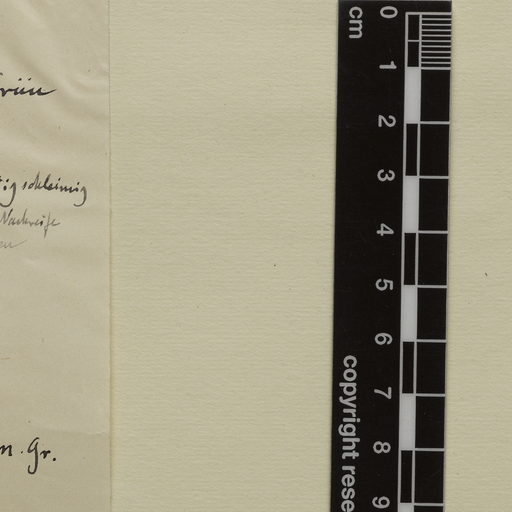 rün
ig schleimig
Nachreife
en
n. Gr.
0
cm
1
2
3
4
5
6
7
8
9
copyright rese